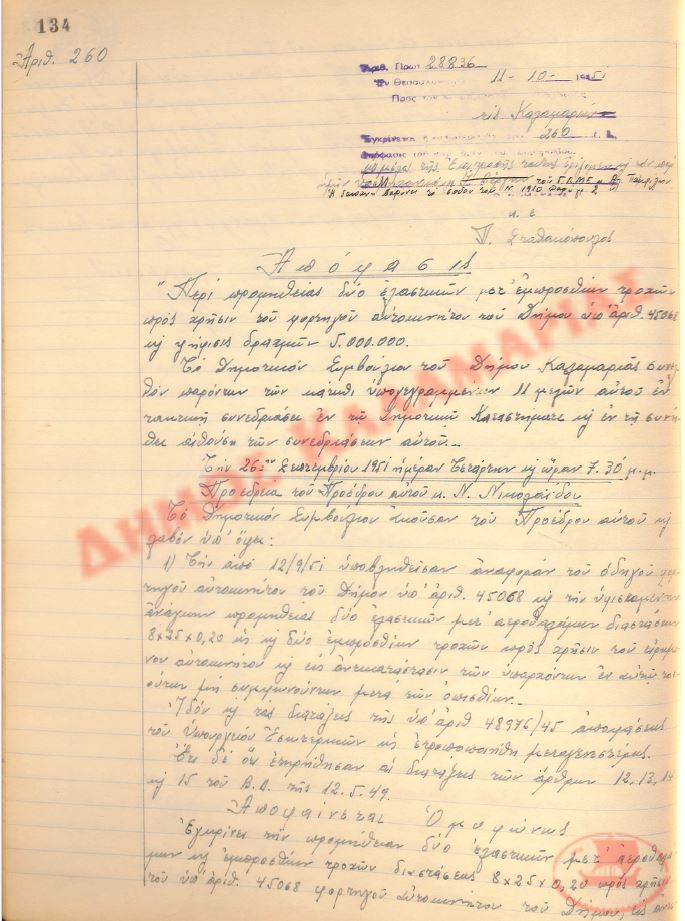 134
Ἀριθ. 260
Ἀριθ. Πρωτ. 28836
Ἐν Θεσσαλονίκῃ 11-10-1951
Πρὸς τὸν
εἰς Καλαμαριὰν
Ἐγκρίνεται 260
ἀπόφασις τοῦ
μέλος τῆς Ἐπιτροπῆς
Ἡ δαπάνη βαρύνει
Π. Σταθακόπουλος
Ἀπόφασις
"Περὶ προμηθείας δύο ἐλαστικῶν μετ' ἐμπροσθίων τροχῶν
πρὸς χρῆσιν τοῦ φορτηγοῦ αὐτοκινήτου τοῦ Δήμου ὑπ' ἀριθ. 45068
κ ψήφισις δραχμῶν 5.000.000.
Τὸ Δημοτικὸν Συμβούλιον τοῦ Δήμου Καλαμαριᾶς συνελ
θὸν παρόντων τῶν κάτωθι ὑπογεγραμμένων 11 μελῶν αὐτοῦ ἐν
τακτικῇ συνεδριάσει ἐν τῷ Δημοτικῷ Καταστήματι κ ἐν τῇ συνή
θει αἰθούσῃ τῶν συνεδριάσεων αὐτοῦ.
Τὴν 26ην Σεπτεμβρίου 1951 ἡμέραν Τετάρτην κ ὥραν 7.30 μ.μ.
Προεδρία τοῦ Προέδρου αὐτοῦ κ. Ν. Νικολαΐδου
Τὸ Δημοτικὸν Συμβούλιον ἀκοῦσαν τοῦ Προέδρου αὐτοῦ κ
λαβὸν ὑπ' ὄψει:
1) Τὴν ἀπὸ 12/9/51 ὑποβληθεῖσαν ἀναφορὰν τοῦ ὁδηγοῦ φορ
τηγοῦ αὐτοκινήτου τοῦ Δήμου ὑπ' ἀριθ. 45068 κ τὴν ὑφισταμένην
ἀνάγκην προμηθείας δύο ἐλαστικῶν μετ' αεροθαλάμων διαστάσεων
8x25x0,20 ὡς κ δύο ἐμπροσθίων τροχῶν πρὸς χρῆσιν τοῦ εἰρημέ
νου αὐτοκινήτου κ εἰς ἀντικατάστασιν τῶν ὑπαρχόντων ἐν αὐτῷ τοι
ούτων μὴ συμφωνούντων μετὰ τῶν ὀπισθίων.
Ἰδὸν κ τὰς διατάξεις τῆς ὑπ' ἀριθ 48976/45 ἀποφάσεως
τοῦ Ὑπουργείου Ἐσωτερικῶν ὡς ἐτροποποιήθη μεταγενεστέρως.
Ἔτι δὲ ὅτι ἐτηρήθησαν αἱ διατάξεις τῶν ἄρθρων 12, 13, 14
κ 15 τοῦ Β.Δ. τῆς 12.5.49.
Ἀποφαίνεται Ὁμοφώνως
Ἐγκρίνει τὴν προμήθειαν δύο ἐλαστικῶν μετ' αεροθαλά
μων κ ἐμπροσθίων τροχῶν διαστάσεως 8x25x0,20 πρὸς χρῆσιν
τοῦ ὑπ' ἀριθ. 45068 φορτηγοῦ αὐτοκινήτου τοῦ Δήμου εἰς
ΔΗΜΟΣ ΚΑΛΑΜΑΡΙΑΣ